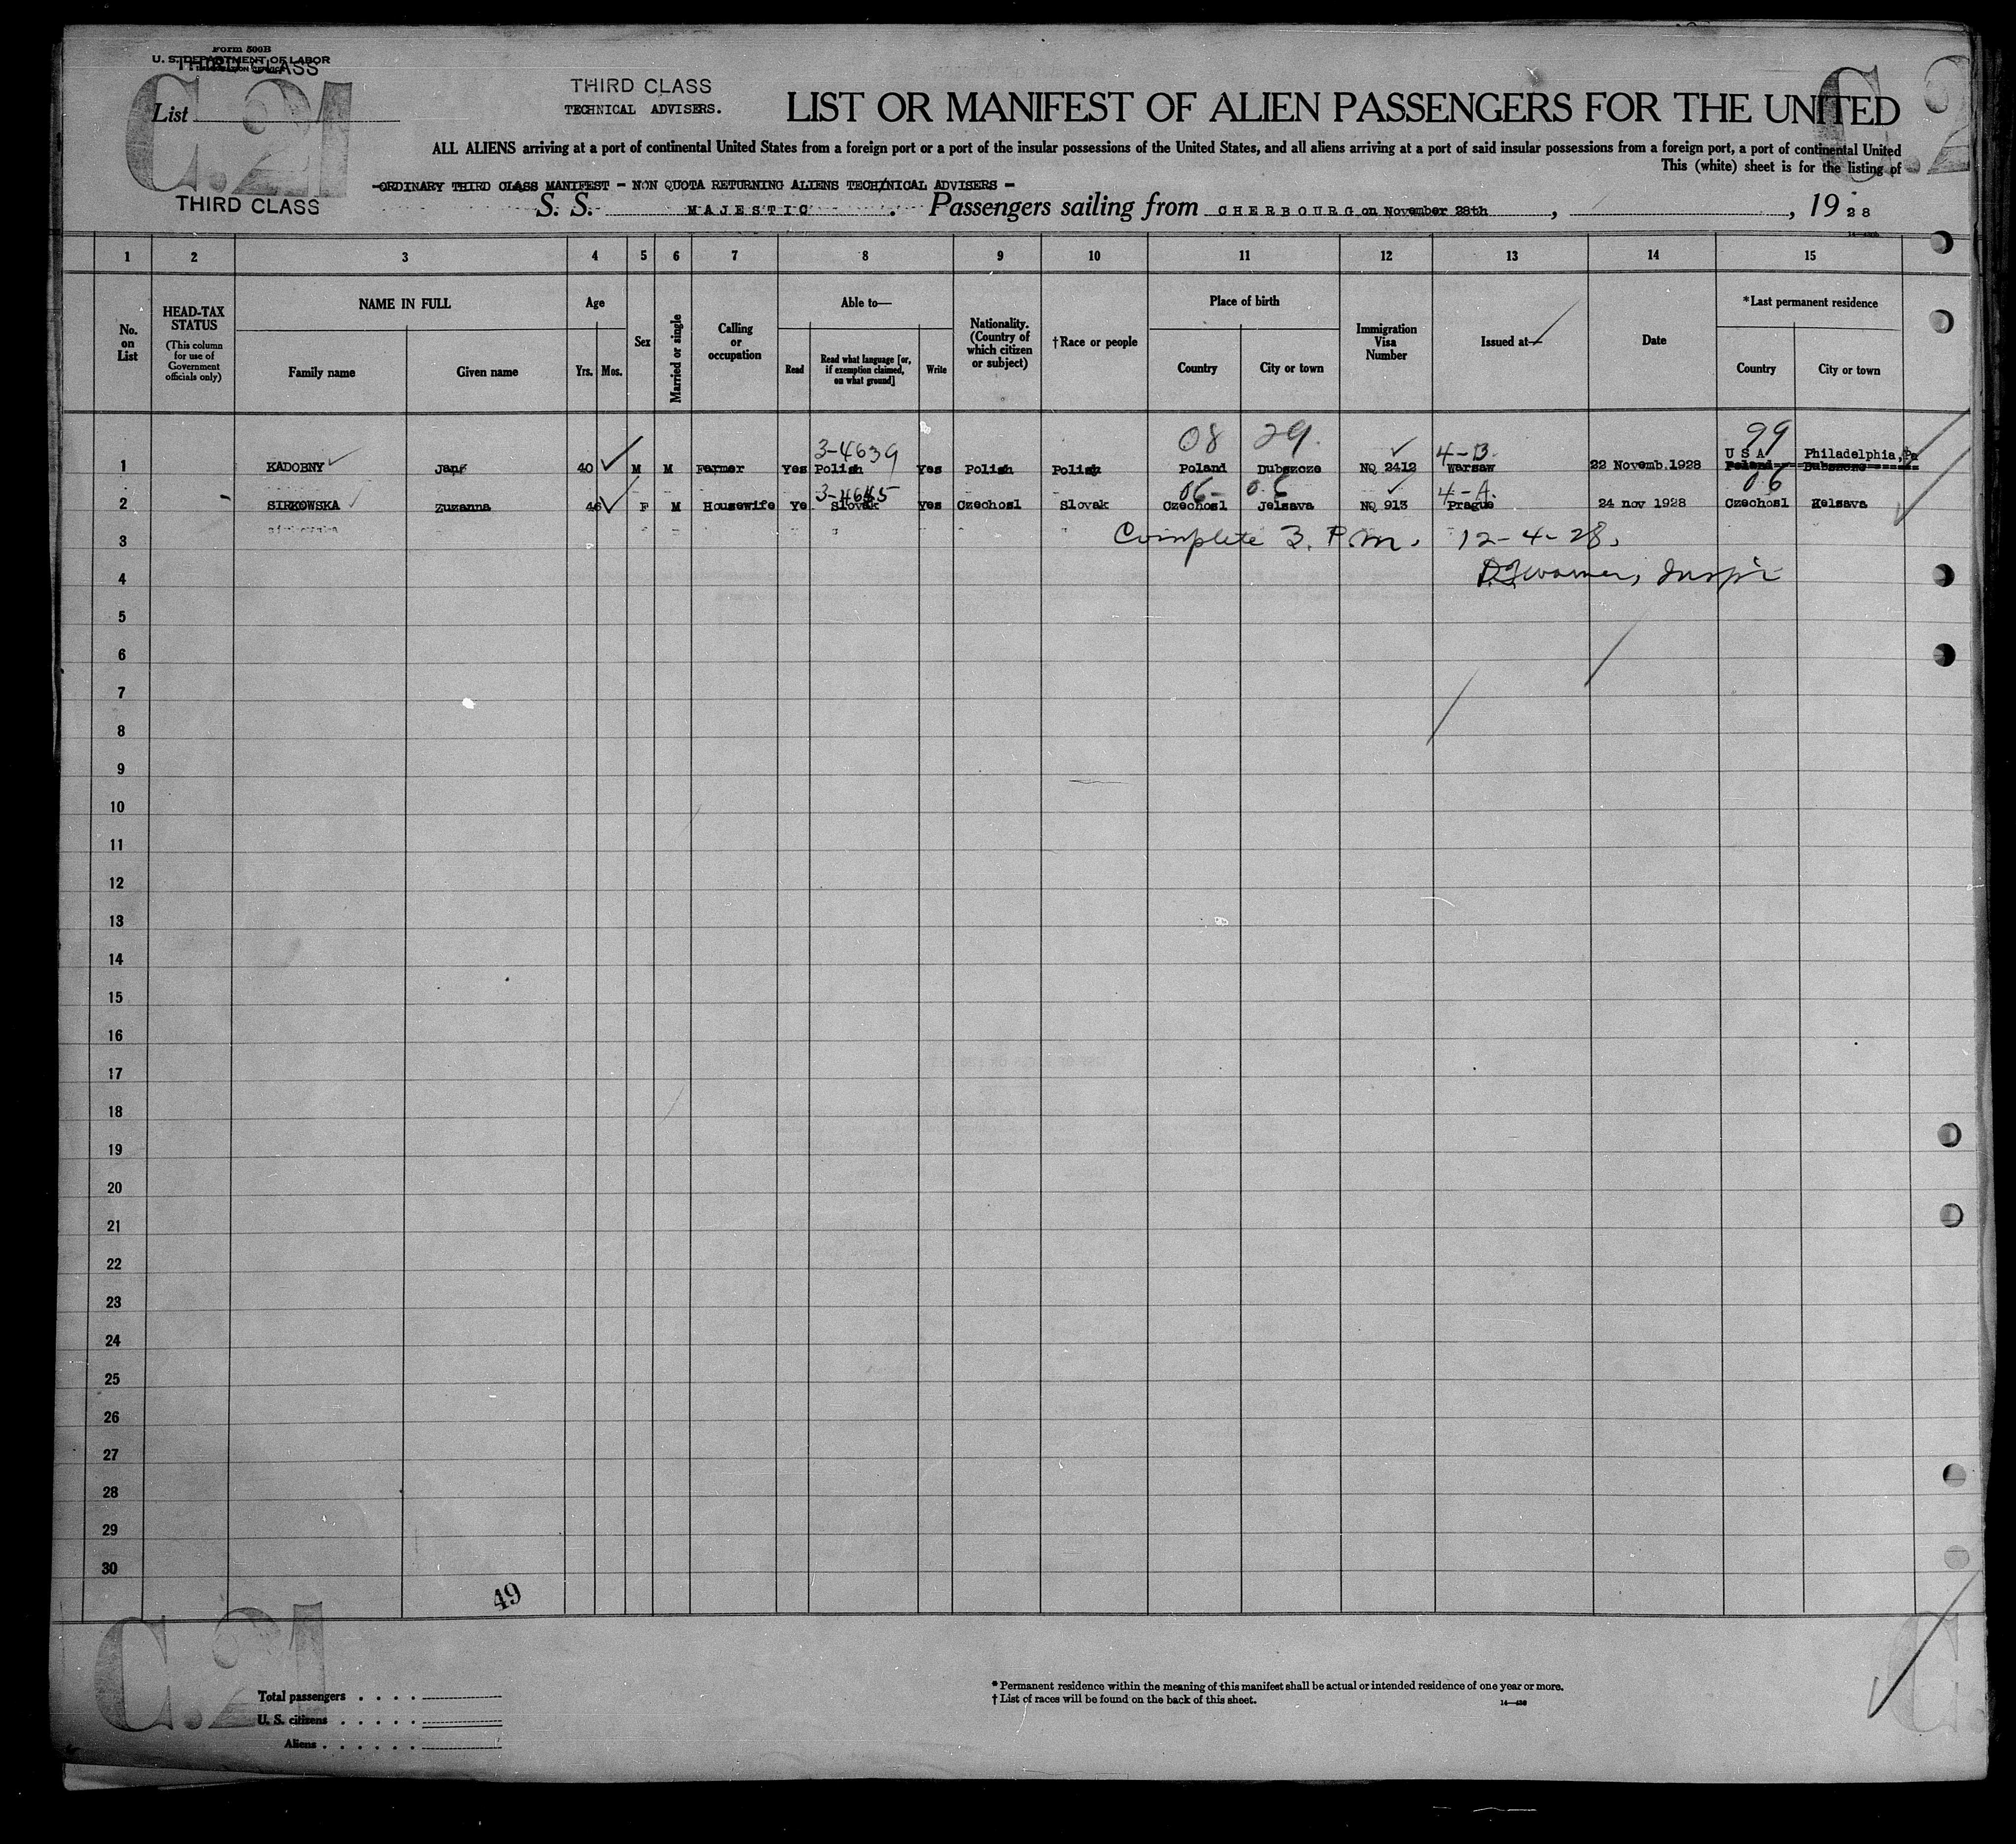 Form 500B
U. S. DEPARTMENT OF LABOR
THIRD CLASS
C.21
List
THIRD CLASS
THIRD CLASS
TECHNICAL ADVISERS.
LIST OR MANIFEST OF ALIEN PASSENGERS FOR THE UNITED
C.2
ALL ALIENS arriving at a port of continental United States from a foreign port or a port of the insular possessions of the United States, and all aliens arriving at a port of said insular possessions from a foreign port, a port of continental United
This (white) sheet is for the listing of
-ORDINARY THIRD CLASS MANIFEST - NON QUOTA RETURNING ALIENS TECHNICAL ADVISERS -
S. S. MAJESTIC. Passengers sailing from CHERBOURG on November 28th, , 1928
1 2 3 4 5 6 7 8 9 10 11 12 13 14 15
No. on List
HEAD-TAX STATUS (This column for use of Government officials only)
NAME IN FULL
Family name Given name
Age
Yrs. Mos.
Sex
Married or single
Calling or occupation
Able to—
Read Read what language [or, if exemption claimed, on what ground] Write
Nationality. (Country of which citizen or subject)
†Race or people
Place of birth
Country City or town
Immigration Visa Number
Issued at—
Date
*Last permanent residence
Country City or town
3-4639 08 29. 4-B. 99
USA Philadelphia, Pa
1 KADOBNY Jan 40 M M Farmer Yes Polish Yes Polish Polish Poland Dubszcze NQ 2412 Warsaw 22 Novemb.1928 Poland Dubszcze
3-4645 06- 06 4-A. 06
2 SIRKOWSKA Zuzanna 46 F M Housewife Ye Slovak Yes Czechosl Slovak Czechosl Jelsava NQ 913 Prague 24 nov 1928 Czechosl Helsava
3 Complete 3. P.M. 12-4-28.
4 Inspr
5
6
7
8
9
10
11
12
13
14
15
16
17
18
19
20
21
22
23
24
25
26
27
28
29
30
49
C.21
Total passengers
U. S. citizens
Aliens
* Permanent residence within the meaning of this manifest shall be actual or intended residence of one year or more.
† List of races will be found on the back of this sheet.
14—430
C.